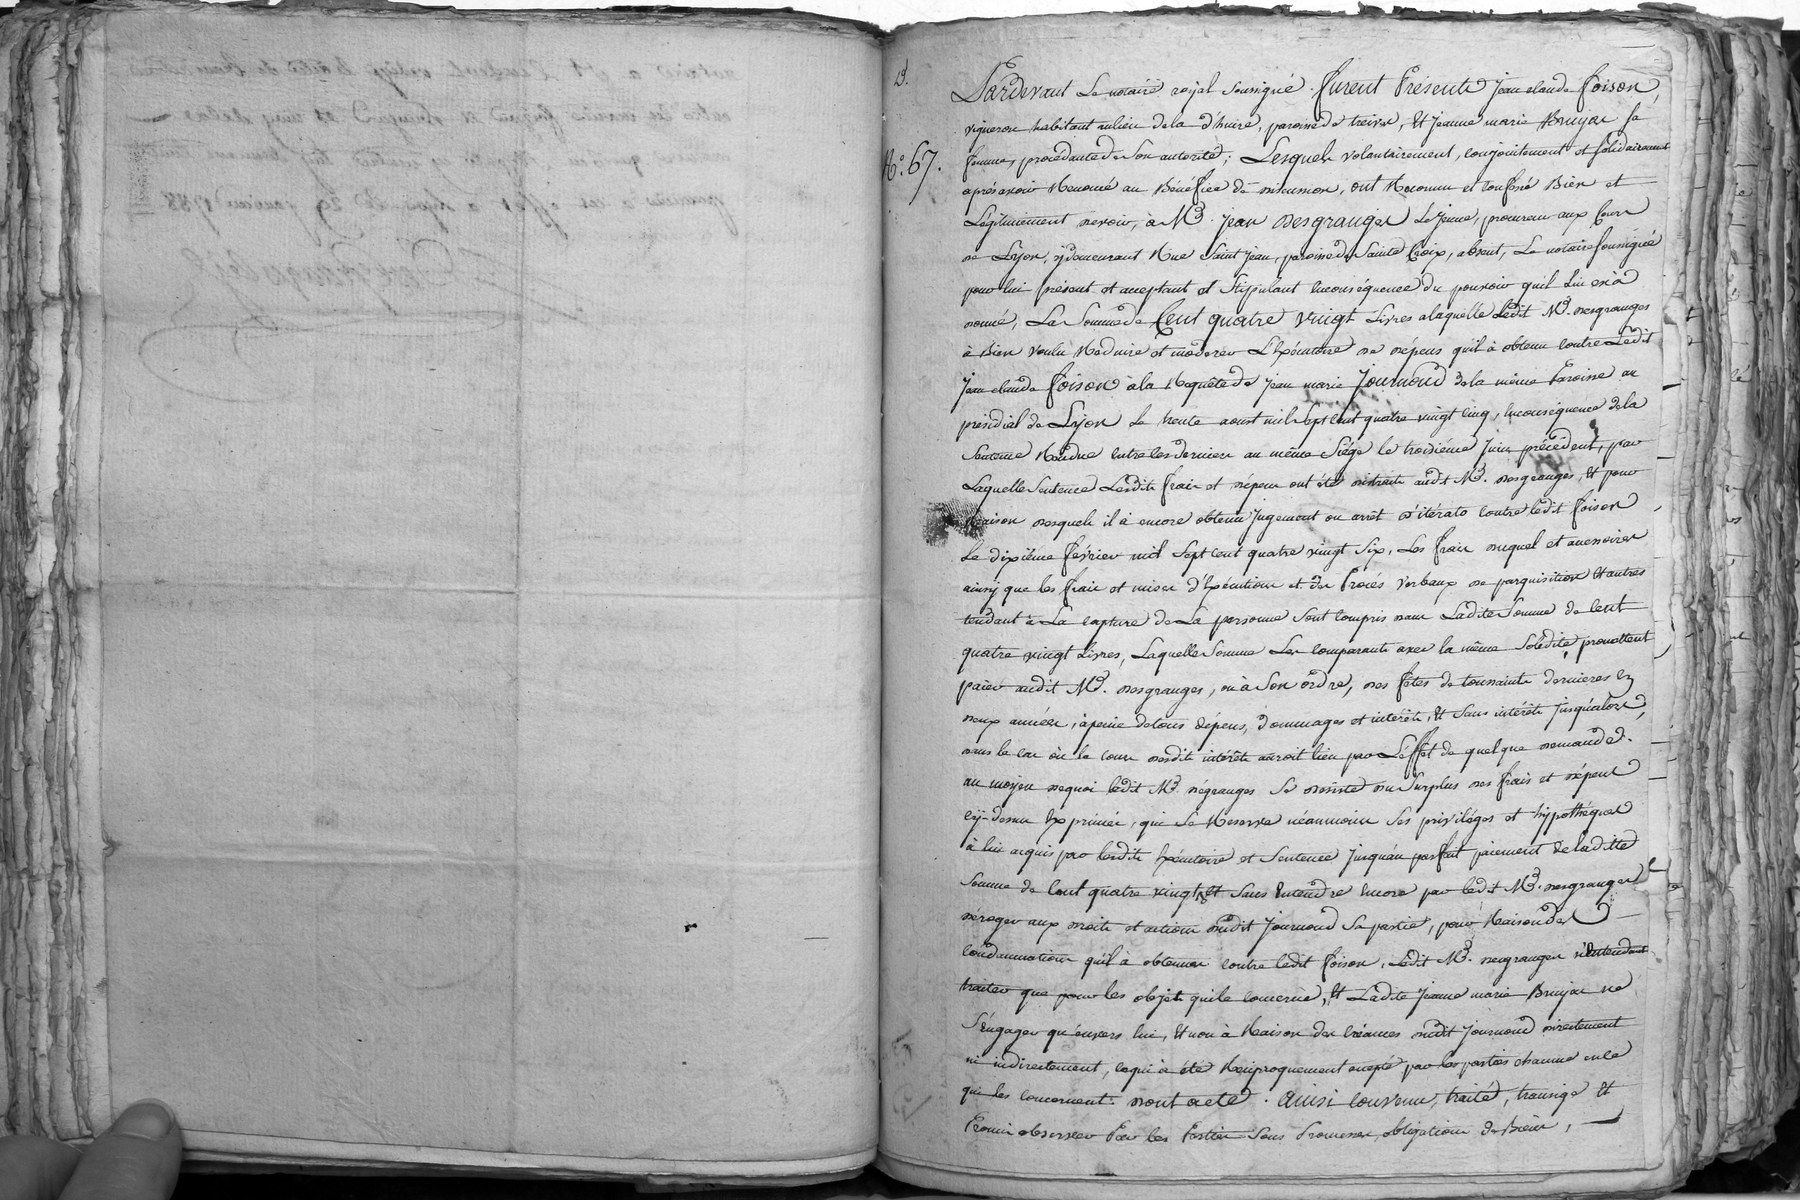 19.
N.° 67.
Pardevant Le notaire royal soussigné. furent Présents Jean claude foison,
vigneron habitant au lieu de la d'huire, paroisse de treive, Et Jeanne marie Brujas sa
femme, procedante de son autorité; Lesquels volontairement, conjointement et solidairement
après avoir Renoncé au Bénéfice de discussion, ont Reconnu et Confessé Bien et
Légitimement devoir, a M.e Jean Desgranges Le Jeune, procureur aux Cours
de Lyon, y demeurant Rue Saint Jean, paroisse de Sainte Croix, absent, Le notaire soussigné
pour lui présent et acceptant et Stipulant Enconséquence du pouvoir quil Lui en à
donné, La Somme de Cent quatre vingt Livres a laquelle Ledit M.e desgranges
à Bien voulu Réduire et modérer L'Exécutoire de dépens qu'il à obtenu contre Ledit
Jean claude foison à la Requête de Jean marie Journoud de la même Paroisse au
présidial de Lyon le trente aoust mil Sept Cent quatre vingt cinq, Enconséquence de la
Sentence Rendue entre ces derniers au même Siége le troisième Juin précédent, par
Laquelle Sentence Lesdits frais et dépens ont été distraits audit M.e desgranges, Et pour
Raison desquels il à encore obtenu Jugement ou arrêt d'itérato contre ledit foison
Le dixième février mil Sept Cent quatre vingt Six, Les frais duquel et accessoires
ainsy que les frais et mises d'Exécution et des Procès verbaux de parquisition Et autres
tendant à La capture de La personne Sont Compris dans Ladite Somme de Cent
quatre vingt Livres, Laquelle Somme Les comparants avec la même Solidité promettent
païer audit M.e desgranges, ou à Son ordre, des fêtes de toussaints dernieres En
deux années, à peine de tous dépens, Dommages et intérêts, Et Sans intérêts Jusqu'alors,
dans le cas où le cours desdits intérêts auroit lieu par L'effet de quelque demande.
au moyen dequoi ledit M.e dégranges Se désiste du Surplus des frais et dépens
cy-dessus Exprimés, qui Se Reserve néanmoins Ses privilèges et hypothèques
à lui acquis par lesdits Exécutoire et Sentence Jusqu'au parfait paiement de laditte
Somme de Cent quatre vingt Et Sans Entendre Encore par ledit M.e desgranges
déroger aux droits et actions dudit Journoud Sa partie, pour Raison des
condamnations quil à obtenues contre ledit foison, Ledit M.e desgranges n'entendant
traiter que pour les objets qui le concerne, Et Ladite Jeanne marie Brujas ne
S'engager qu'envers lui, Et non à Raison des créances dudit Journoud directement
ni indirectement, cequi à été Réciproquement accepté par les parties chacune en ce
qui les concernent. dont acte. Ainsi Convenu, traité, transigé Et
Promis observer Par les Parties Sous Promesses, obligations de Biens,